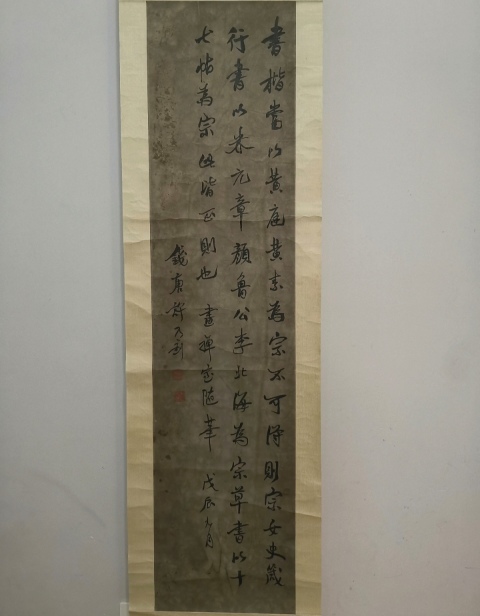 書楷當以黃庭黃素為宗不可得則宗女史箴
行書以米元章顏魯公李北海為宗草書以十
七帖為宗此皆正則也 畫禪室隨筆 戊辰九月
錢唐許乃釗